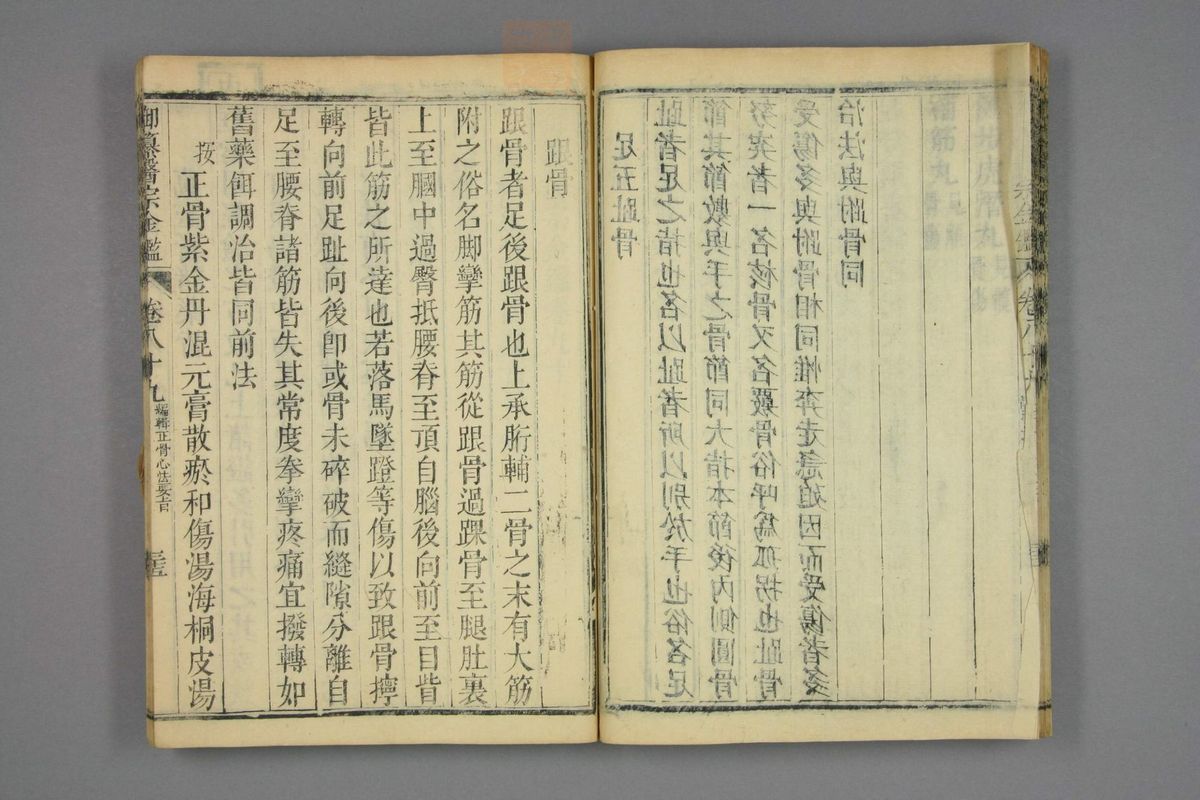 足五趾骨
趾者足之指也名以趾者所以別於手也俗名足
節其節數與手之骨節同大指本節後內側圓骨
努突者一名核骨又名覈骨俗呼爲孤拐也趾骨
受傷多與跗骨相同惟奔走急迫因而受傷者多
治法與跗骨同
跟骨
跟骨者足後跟骨也上承胻輔二骨之末有大筋
附之俗名脚攣筋其筋從跟骨過踝骨至腿肚裏
上至膕中過臀抵腰脊至頂自腦後向前至目眥
皆此筋之所達也若落馬墜蹬等傷以致跟骨擰
轉向前足趾向後即或骨未碎破而縫隙分離自
足至腰脊諸筋皆失其常度拳攣疼痛宜撥轉如
舊藥餌調治皆同前法
按 正骨紫金丹混元膏散瘀和傷湯海桐皮湯
御纂醫宗金鑑 卷八十九 編輯正骨心法要旨 三五